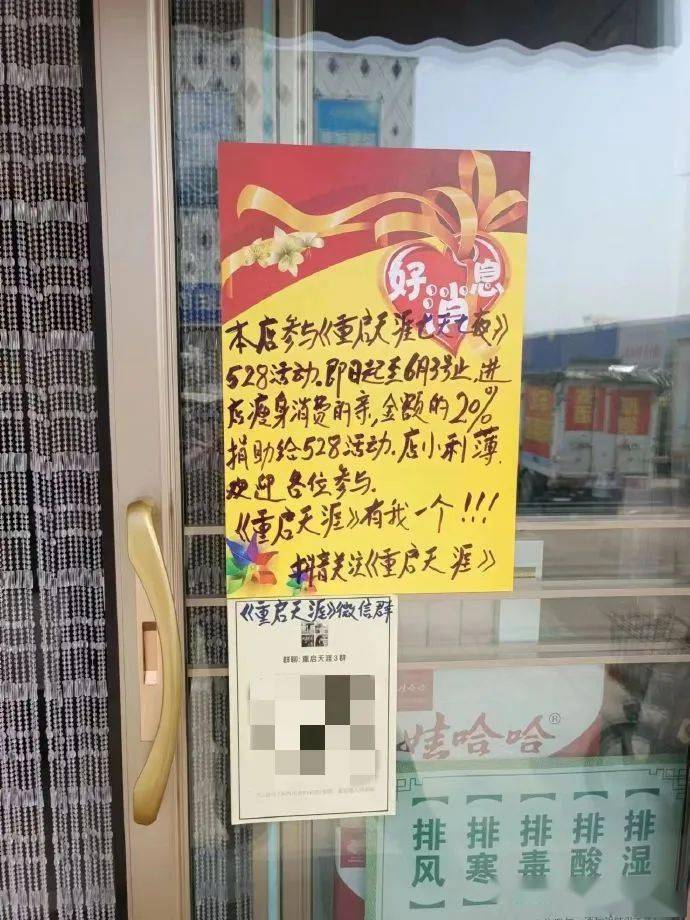 好消息
本店参与《重启天涯七天七夜》
528活动。即日起至6月3号止,进
店瘦身消费的亲,金额的20%
捐助给528活动.店小利薄.
欢迎各位参与.
《重启天涯》有我一个!!!
抖音关注《重启天涯》
《重启天涯》微信群
群聊:重启天涯3群
娃哈哈®
【排风】
【排寒】
【排毒】
【排酸】
【排湿】